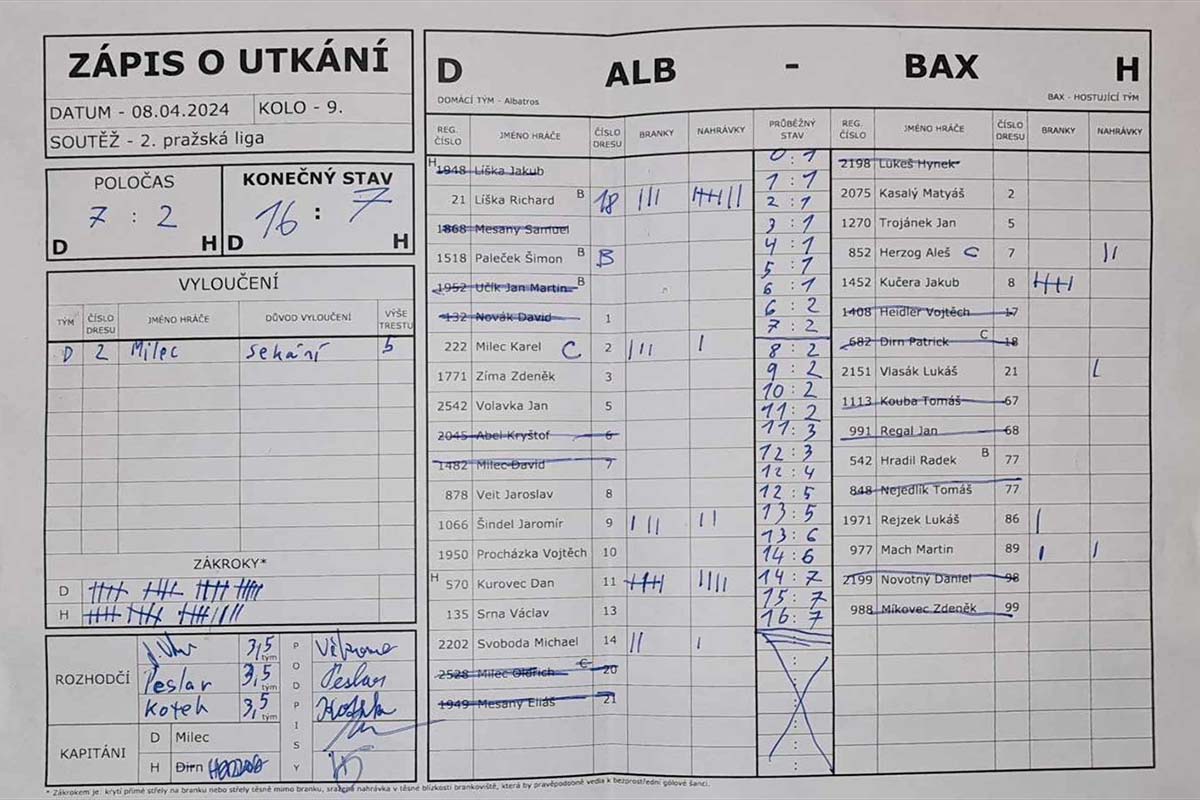 ZÁPIS O UTKÁNÍ
DATUM - 08.04.2024 KOLO - 9.
SOUTĚŽ - 2. pražská liga
POLOČAS
7 : 2
D H
KONEČNÝ STAV
16 : 7
D H
VYLOUČENÍ
TÝM ČÍSLO DRESU JMÉNO HRÁČE DŮVOD VYLOUČENÍ VÝŠE TRESTU
D 2 Milec sekání 5
ZÁKROKY*
D
H
ROZHODČÍ
3,5 tým
Peslar 3,5 tým Peslar
Kotek 3,5 tým
PODPISY
KAPITÁNI
D Milec
H Dirn
D ALB - BAX H
DOMÁCÍ TÝM - Albatros BAX - HOSTUJÍCÍ TÝM
REG. ČÍSLO JMÉNO HRÁČE ČÍSLO DRESU BRANKY NAHRÁVKY
H 1948 Líška Jakub
21 Líška Richard B 18 III IIIIIII
1868 Mesany Samuel
1518 Paleček Šimon B B
1952 Učík Jan Martin B
132 Novák David 1
222 Milec Karel C 2 III I
1771 Zíma Zdeněk 3
2542 Volavka Jan 5
2045 Abel Kryštof 6
1482 Milec David 7
878 Veit Jaroslav 8
1066 Šindel Jaromír 9 III II
1950 Procházka Vojtěch 10
H 570 Kurovec Dan 11 IIIII IIII
135 Srna Václav 13
2202 Svoboda Michael 14 II I
2528 Milec Oldřich C 20
1949 Mesany Eliáš 21
PRŮBĚŽNÝ STAV
0 : 1
1 : 1
2 : 1
3 : 1
4 : 1
5 : 1
6 : 1
6 : 2
7 : 2
8 : 2
9 : 2
10 : 2
11 : 2
11 : 3
12 : 3
12 : 4
12 : 5
13 : 5
13 : 6
14 : 6
14 : 7
15 : 7
16 : 7
REG. ČÍSLO JMÉNO HRÁČE ČÍSLO DRESU BRANKY NAHRÁVKY
2198 Lukeš Hynek
2075 Kasalý Matyáš 2
1270 Trojánek Jan 5
852 Herzog Aleš C 7 II
1452 Kučera Jakub 8 IIIII
1408 Heidler Vojtěch 17
682 Dirn Patrick C 18
2151 Vlasák Lukáš 21 I
1113 Kouba Tomáš 67
991 Regal Jan 68
542 Hradil Radek B 77
848 Nejedlík Tomáš 77
1971 Rejzek Lukáš 86 I
977 Mach Martin 89 I I
2199 Novotný Daniel 98
988 Míkovec Zdeněk 99
* Zákrokem je: krytí přímé střely na branku nebo střely těsně mimo branku, sražená nahrávka v těsné blízkosti brankoviště, která by pravěpodobně vedla k bezprostřední gólové šanci.